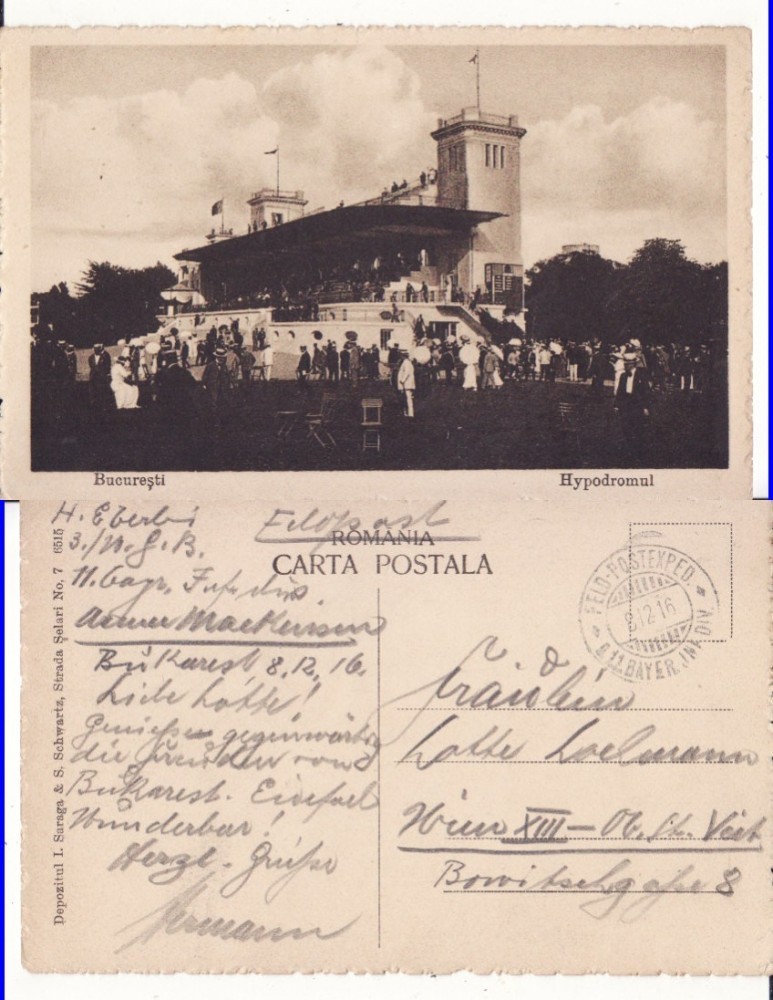 București
Hypodromul
Depozitul I. Saraga & S. Schwartz, Strada Șelari No, 7 6515
ROMÂNIA
CARTA POSTALA
Feldpost
FELD-POSTEXPED.
8.12.16
D. 11. BAYER. INF. DIV.
H.
3./
11. bayr. Inf. div
Armee Mackensen
Bukarest 8.12.16.
Liebe Lotte!
Genieße gegenwärtig
die Freuden von
Bukarest. Einfach
Wunderbar!
Herzl. Grüße
Hermann
Fräulein
Lotte
Wien XIII – Ob. St. Veit
8